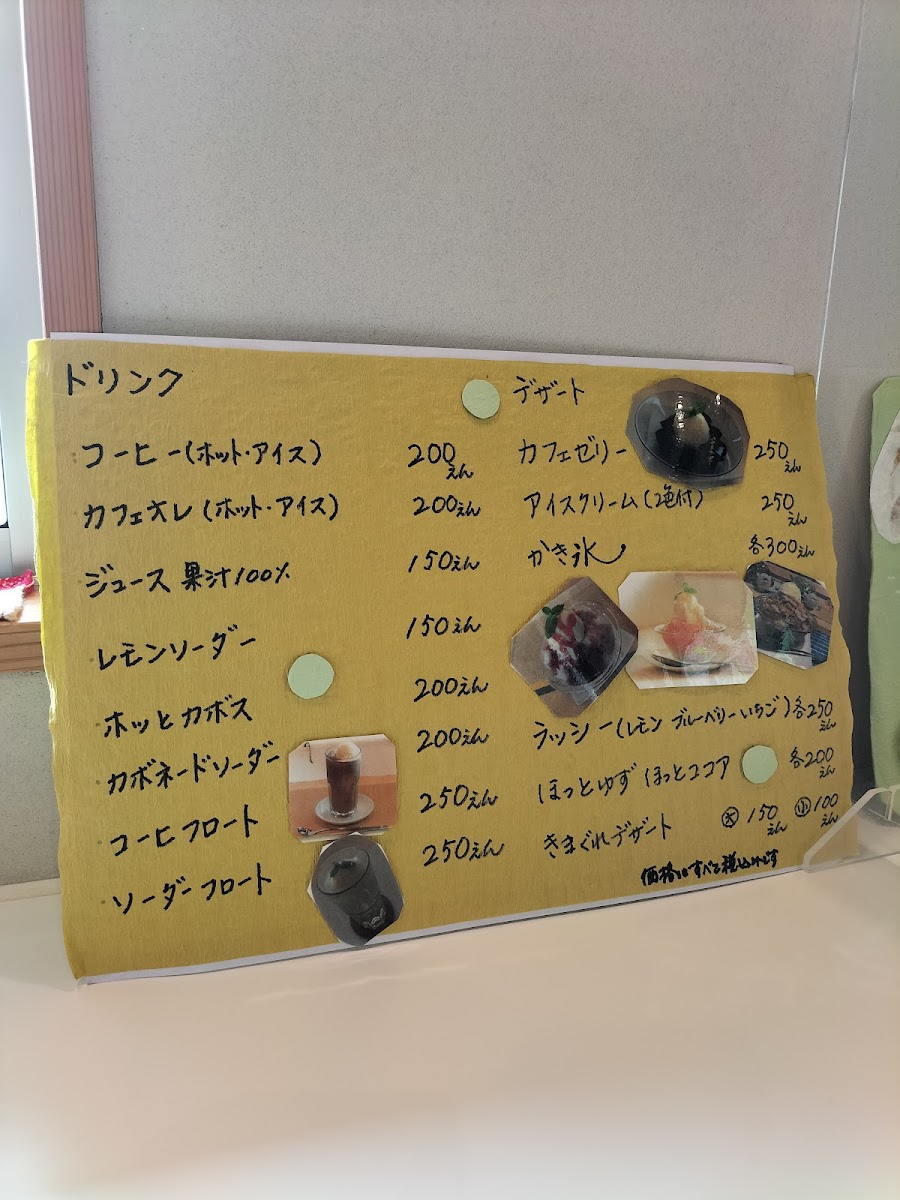 ドリンク
コーヒー(ホット・アイス) 200えん
カフェオレ(ホット・アイス) 200えん
ジュース 果汁100% 150えん
レモンソーダー 150えん
ホッとカボス 200えん
カボネードソーダー 200えん
コーヒフロート 250えん
ソーダーフロート 250えん
デザート
カフェゼリー 250えん
アイスクリーム(2色付) 250えん
かき氷 各300えん
ラッシー(レモン ブルーベリー いちご) 各250えん
ほっとゆず ほっとココア 各200えん
きまぐれデザート 大 150えん 小 100えん
価格はすべて税込みです